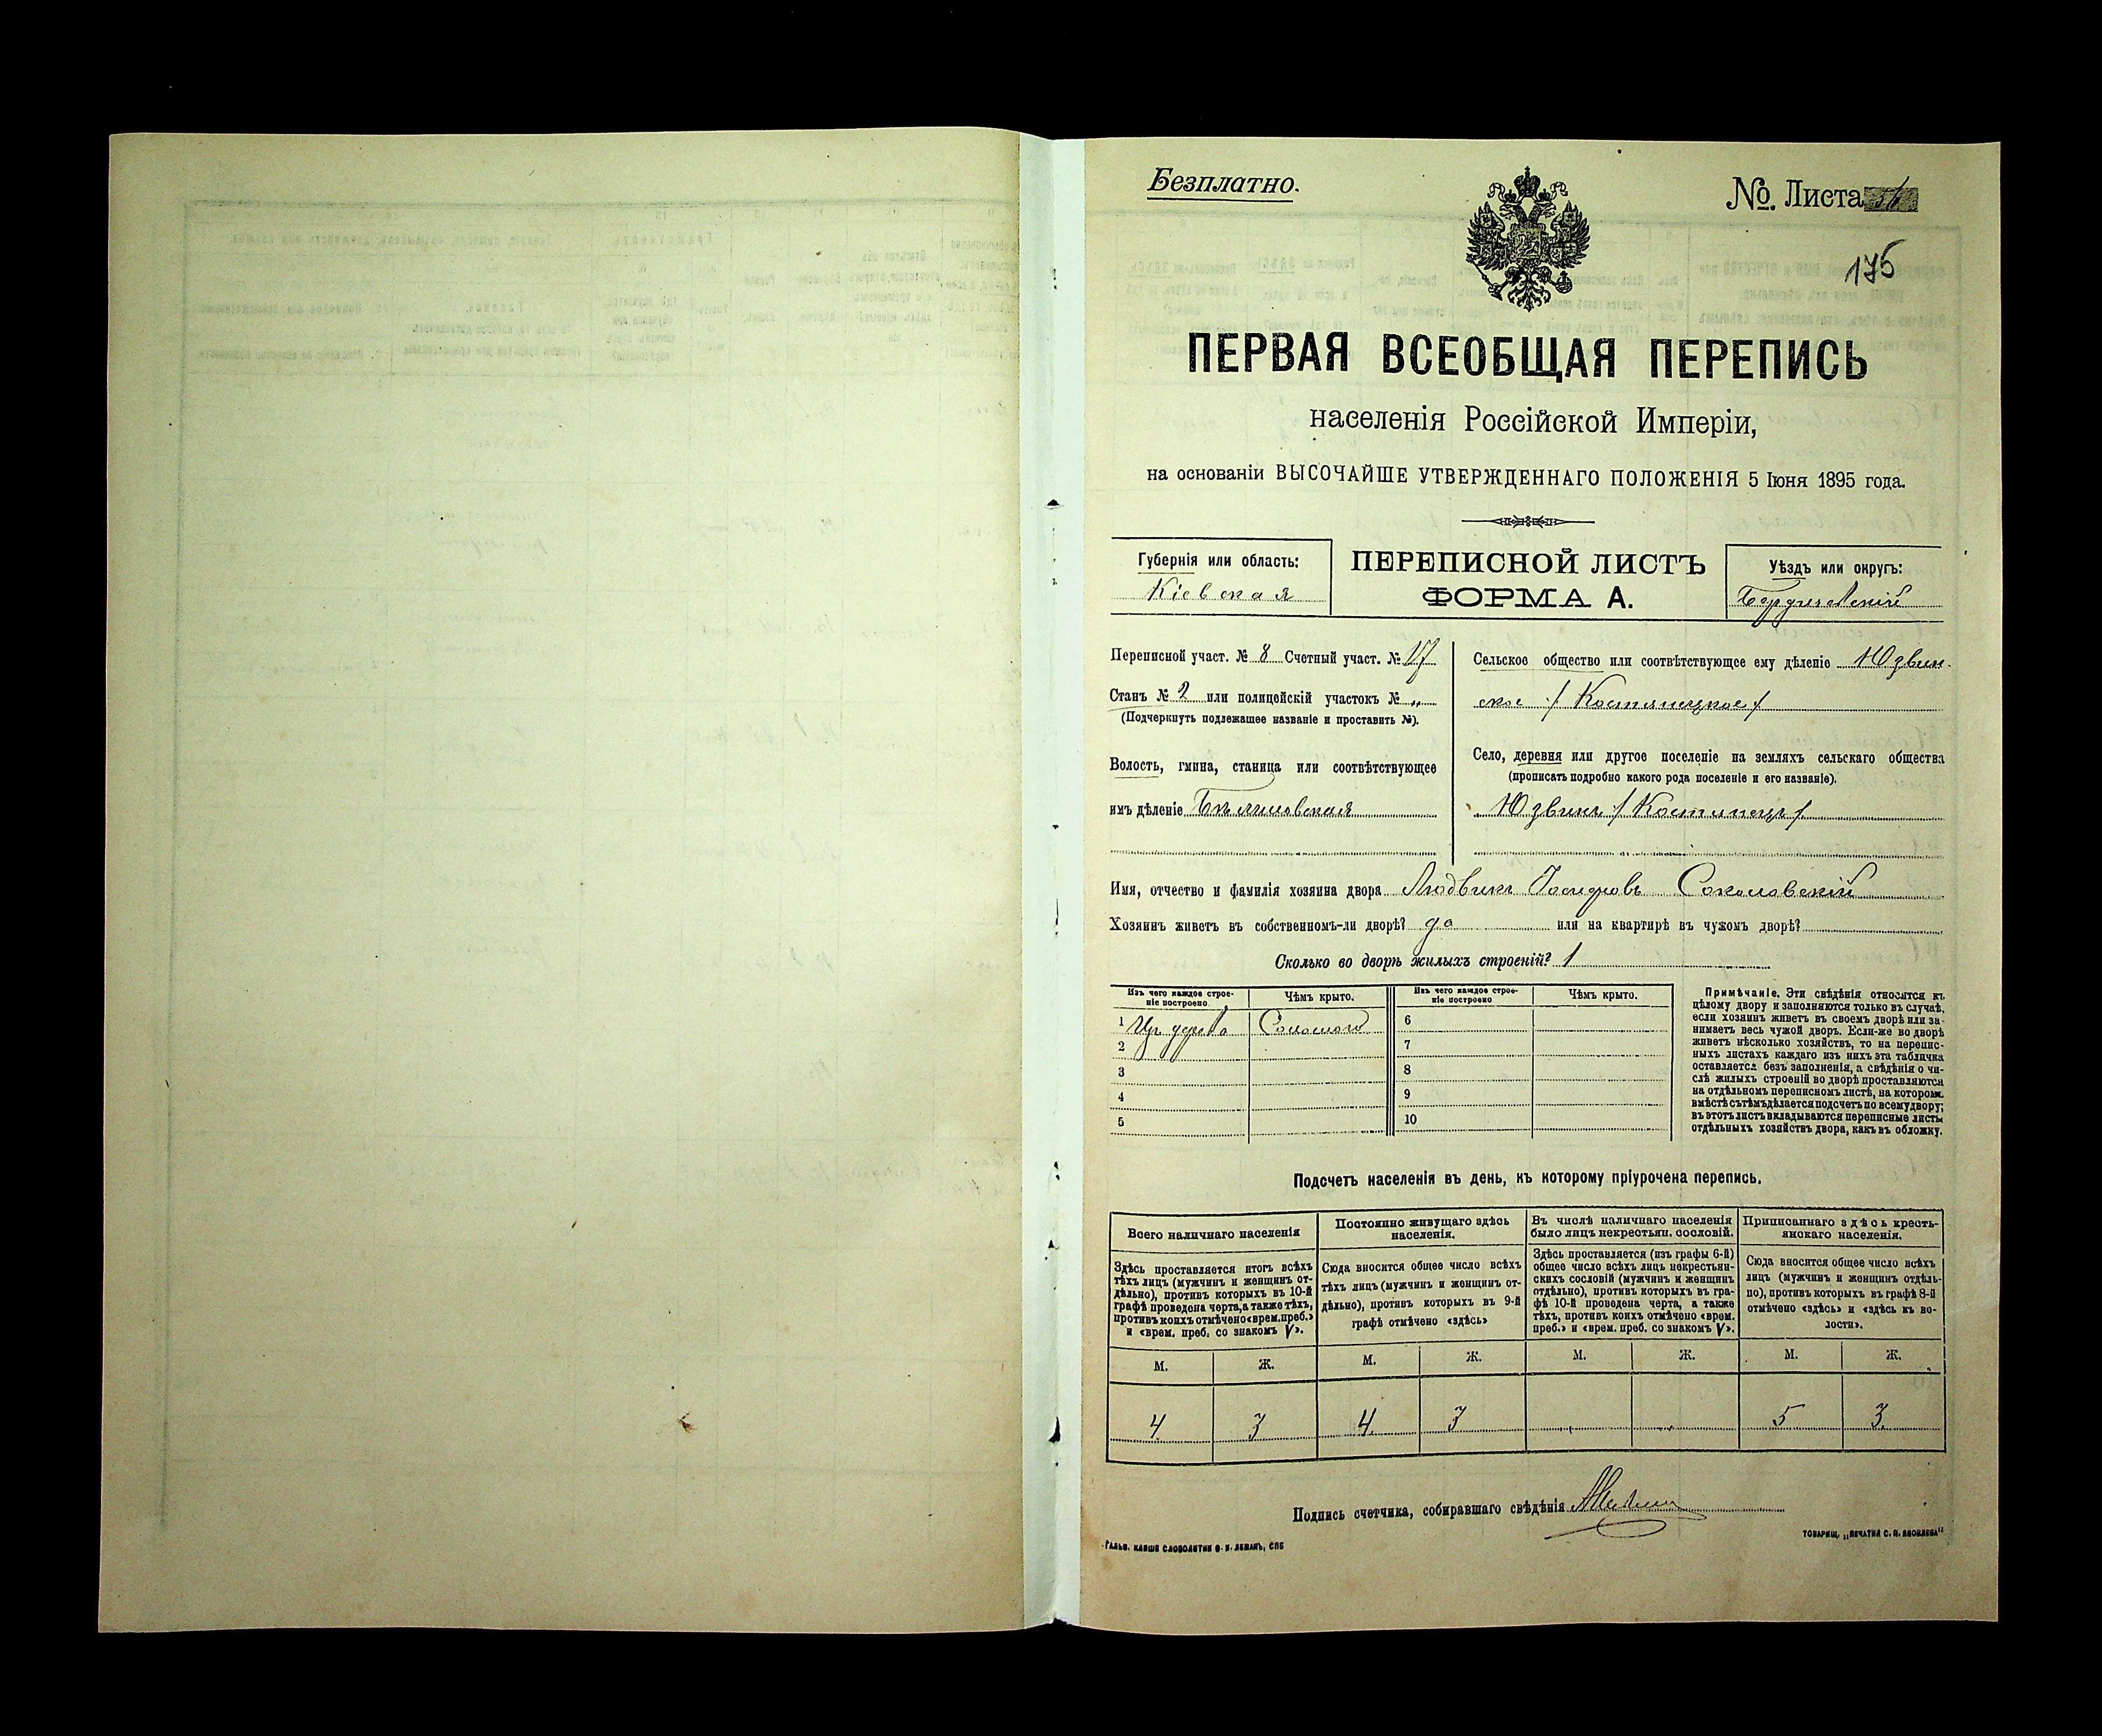 Безплатно.
№ Листа
175
ПЕРВАЯ ВСЕОБЩАЯ ПЕРЕПИСЬ
населенія Россійской Имперіи,
на основаніи ВЫСОЧАЙШЕ УТВЕРЖДЕННАГО ПОЛОЖЕНІЯ 5 Іюня 1895 года.
Губернія или область:
Кіевская
ПЕРЕПИСНОЙ ЛИСТЪ
ФОРМА А.
Уѣздъ или округъ:
Бердичевскій
Переписной участ. № 8 Счетный участ. № 17
Станъ № 2 или полицейскій участокъ № „
(Подчеркнуть подлежащее названіе и проставить №).
Волость, гмина, станица или соотвѣтствующее
имъ дѣленіе
Сельское общество или соотвѣтствующее ему дѣленіе Юзвин-
ское /Костянецкое/
Село, деревня или другое поселеніе на земляхъ сельскаго общества
(прописать подробно какого рода поселеніе и его названіе).
Юзвинъ /Костянецъ/
Имя, отчество и фамилія хозяина двора Людвикъ Соколовскій
Хозяинъ живетъ въ собственномъ-ли дворѣ? да или на квартирѣ въ чужомъ дворѣ?
Сколько во дворѣ жилыхъ строеній? 1
Изъ чего каждое строе-
ніе построено
Чѣмъ крыто.
Изъ чего каждое строе-
ніе построено
Чѣмъ крыто.
1 Изъ дерева Соломою 6
2 7
3 8
4 9
5 10
Примѣчаніе. Эти свѣдѣнія относятся къ
цѣлому двору и заполняются только въ случаѣ,
если хозяинъ живетъ въ своемъ дворѣ или за-
нимаетъ весь чужой дворъ. Если-же во дворѣ
живетъ нѣсколько хозяйствъ, то на перепис-
ныхъ листахъ каждаго изъ нихъ эта табличка
оставляется безъ заполненія, а свѣдѣнія о чи-
слѣ жилыхъ строеній во дворѣ проставляются
на отдѣльномъ переписномъ листѣ, на которомъ
вмѣстѣ съ тѣмъ дѣлается подсчетъ по всему двору;
въ этотъ листъ вкладываются переписные листы
отдѣльныхъ хозяйствъ двора, какъ въ обложку.
Подсчетъ населенія въ день, къ которому пріурочена перепись.
Всего наличнаго населенія
Здѣсь проставляется итогъ всѣхъ
тѣхъ лицъ (мужчинъ и женщинъ от-
дѣльно), противъ которыхъ въ 10-й
графѣ проведена черта, а также тѣхъ,
противъ коихъ отмѣчено «врем. преб.»
и «врем. преб. со знакомъ V».
Постоянно живущаго здѣсь
населенія.
Сюда вносится общее число всѣхъ
тѣхъ лицъ (мужчинъ и женщинъ от-
дѣльно), противъ которыхъ въ 9-й
графѣ отмѣчено «здѣсь»
Въ числѣ наличнаго населенія
было лицъ некрестьян. сословій.
Здѣсь проставляется (изъ графы 6-й)
общее число всѣхъ лицъ некрестьян-
скихъ сословій (мужчинъ и женщинъ
отдѣльно), противъ которыхъ въ гра-
фѣ 10-й проведена черта, а также
тѣхъ, противъ коихъ отмѣчено «врем.
преб.» и «врем. преб. со знакомъ V».
Приписаннаго здѣсь кресть-
янскаго населенія.
Сюда вносится общее число всѣхъ
лицъ (мужчинъ и женщинъ отдѣль-
но), противъ которыхъ въ графѣ 8-й
отмѣчено «здѣсь» и «здѣсь къ во-
лости».
М. Ж. М. Ж. М. Ж. М. Ж.
4 3 4 3 „ „ 5 3
Подпись счетчика, собиравшаго свѣдѣнія
ГАЛЬВ. КЛИШЕ СЛОВОЛИТНИ О. И. ЛЕМАНЪ, СПБ
ТОВАРИЩ. „ПЕЧАТНЯ С. П. ЯКОВЛЕВА"